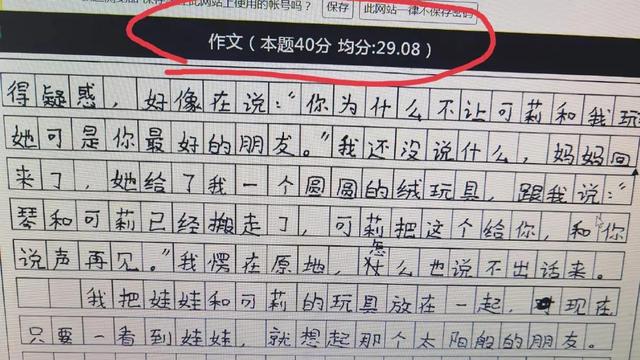 此网站上使用的帐号吗？ 保存 此网站一律不保存密码
作文（本题40分 均分:29.08）
得疑惑，好像在说：“你为什么不让可莉和我玩
她可是你最好的朋友。”我还没说什么，妈妈回
来了，她给了我一个圆圆的绒玩具，跟我说：“
琴和可莉已经搬走了，可莉把这个给你，和你
说声再见。”我愣在原地，怎么也说不出话来。
我把娃娃和可莉的玩具放在一起，现在
只要一看到娃娃，就想起那个太阳般的朋友。